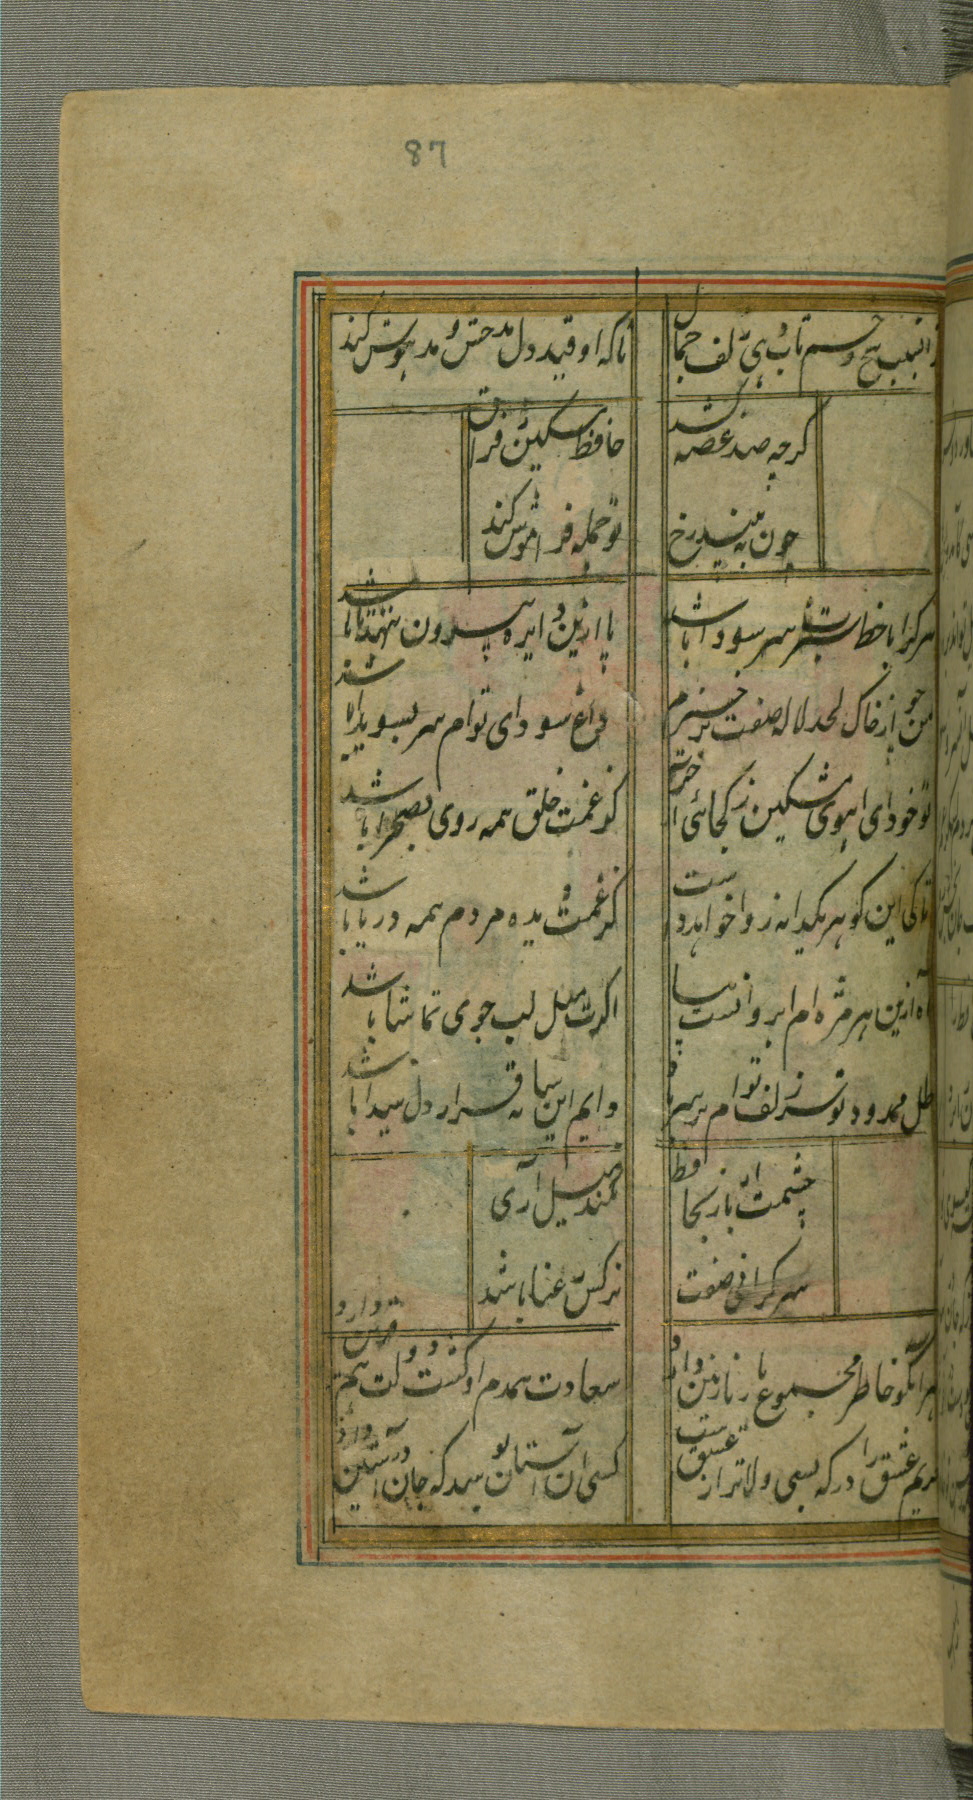 87
تا که او قید دل مدحش و مدهوش کند
گرچه صد غصه کشد
حافظ مسکین فراق
چون به بیند رخ
تو جمله فراموش کند
هر کرا با خط سبزت سر سودا باشد
پا ازین دایره بیرون ننهد تا باشد
من چو از خاک لحد لاله صفت برخیزم
داغ سودای توام سر بسویدا باشد
تو خود ای اهوی مشکین ز کجائی آخر
کز غمت خلق همه روی بصحرا باشد
تا کی این گوهر یکدانه روا خواهد
کز غمت دیده مردم همه دریا باشد
از بن هر مژه ام اب روانست بیا
اگرت میل لب جوی تماشا باشد
ظل ممدود تو سر زلف توام بر سر
دایم این سایه قرار دل شیدا باشد
چشمت از ناز بحافظ
نکند میل آری
سر گرانی صفت
نرکس رعنا باشد
هر آنکو خاطر مجموع یار نازنین دارد
سعادت همدم او گشت و دولت همقرین دارد
حریم عشق را درگه بسی والاتر از عشق است
کسی آن آستان بوسد که جان در آستین دارد